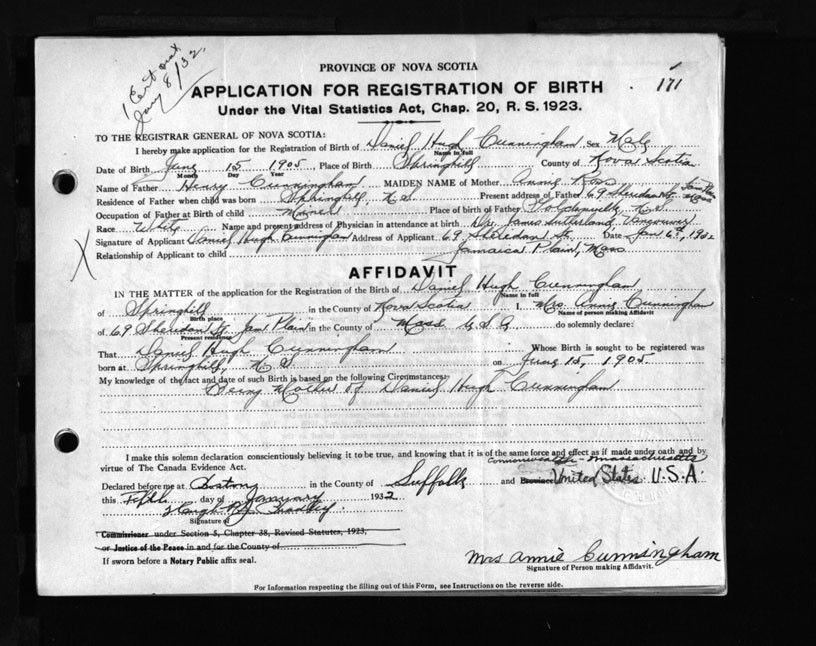 1 Cert
Jany 8/32.
PROVINCE OF NOVA SCOTIA
171
APPLICATION FOR REGISTRATION OF BIRTH
Under the Vital Statistics Act, Chap. 20, R. S. 1923.
TO THE REGISTRAR GENERAL OF NOVA SCOTIA:
I hereby make application for the Registration of Birth of Daniel Hugh Cunningham Sex Male
Name in full
Date of Birth June 15 1905, Place of Birth Springhill County of Nova Scotia
Month Day Year
Name of Father Henry Cunningham MAIDEN NAME of Mother Annie Ross
Residence of Father when child was born Springhill, N.S. Present address of Father 69 Sheridan St, Jam Plain Mass
Occupation of Father at Birth of child Miner Place of birth of Father N.S.
Race White Name and present address of Physician in attendance at birth Dr. James Sutherland, Vancouver
Signature of Applicant Daniel Hugh Cunningham Address of Applicant 69 Sheridan St., Date Jan 6th, 1932
Relationship of Applicant to child Jamaica Plain, Mass
X
AFFIDAVIT
IN THE MATTER of the application for the Registration of the Birth of Daniel Hugh Cunningham
Name in full
of Springhill in the County of Nova Scotia I, Mrs. Annie Cunningham
Birth place Name of person making Affidavit
of 69 Sheridan St, Jam Plain in the County of Mass U.S.A do solemnly declare:
Present residence
That Daniel Hugh Cunningham Whose Birth is sought to be registered was
born at Springhill, N.S on June 15, 1905.
My knowledge of the fact and date of such Birth is based on the following Circumstances:
Being Mother of Daniel Hugh Cunningham
I make this solemn declaration conscientiously believing it to be true, and knowing that it is of the same force and effect as if made under oath and by
virtue of The Canada Evidence Act.
Commonwealth - Massachusetts
Declared before me at Boston in the County of Suffolk and Province United States U.S.A.
this Fifth day of January 1932
Signature of
Commissioner under Section 5, Chapter 38, Revised Statutes, 1923,
or Justice of the Peace in and for the County of
If sworn before a Notary Public affix seal.
Mrs Annie Cunningham
Signature of Person making Affidavit.
For Information respecting the filling out of this Form, see Instructions on the reverse side.